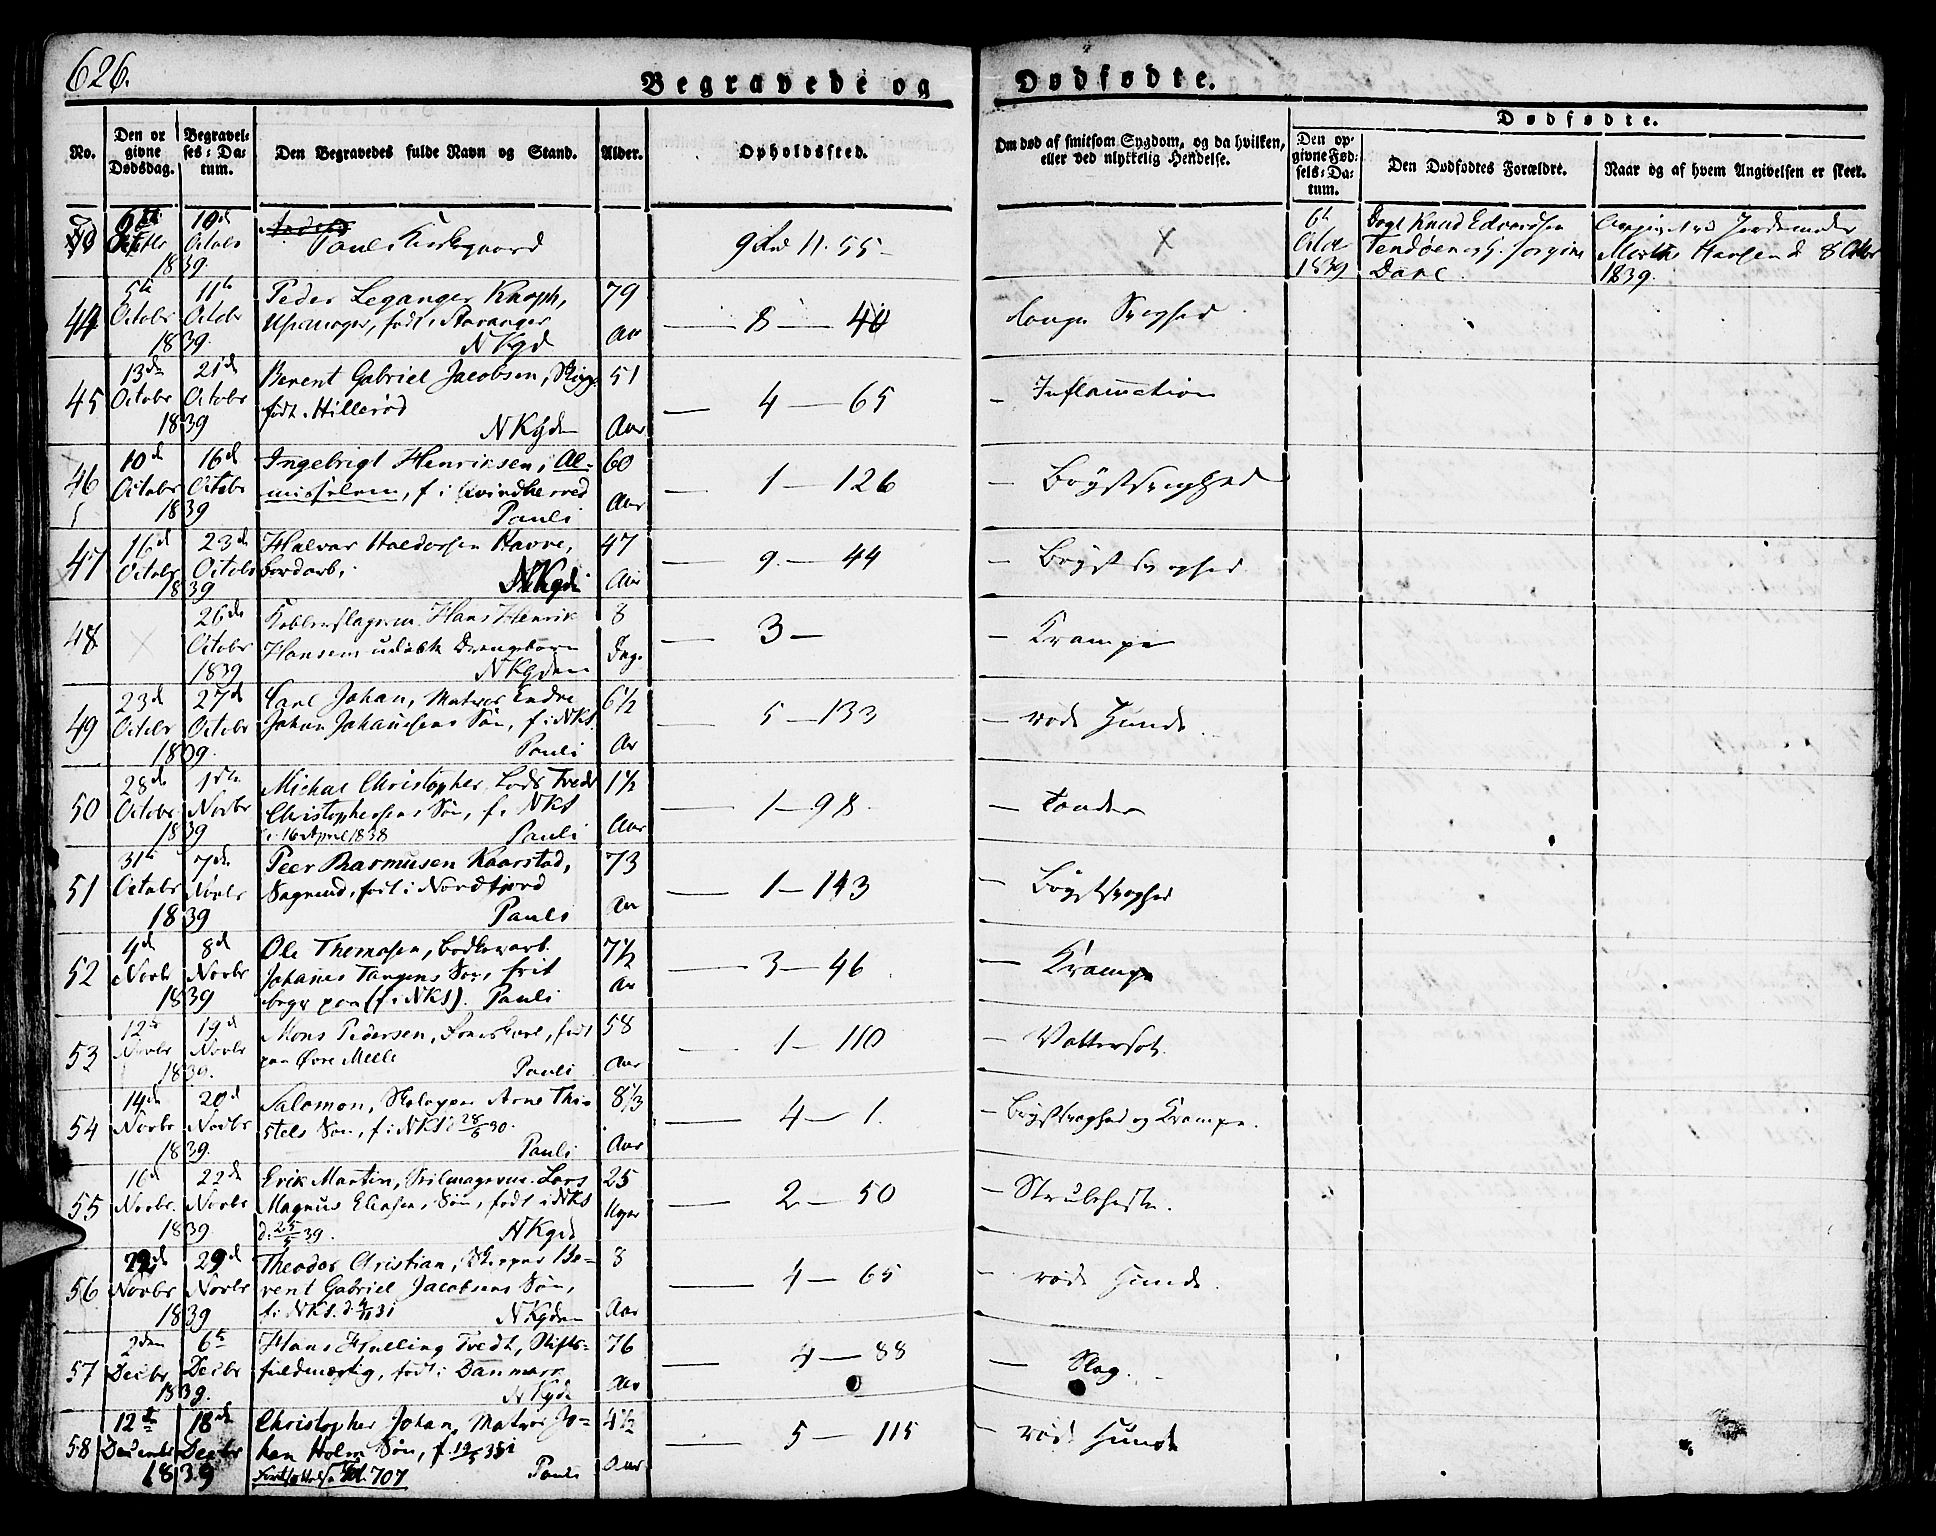 626.
Begravede og Dødfødte.
No.
Den opgivne Dødsdag.
Begravelses-Datum.
Den Begravedes fulde Navn og Stand.
Alder.
Opholdssted.
Om død af smitsom Sygdom, og da hvilken,
eller ved ulykkelig Hendelse.
Dødfødte.
Den opgivne Fødsels-Datum.
Den Dødfødtes Forældre.
Naar og af hvem Angivelsen er skeet.
6te Octbr 10de Octobr 1839.
Pauls Kirkegaard
11. 55
6te Octbr 1839
Knud Edvardsen
Dare
Jordemoder
Hansen d. 8 Octbr
1839.
44 5te Octobr 11te Octobr 1839.
Peder Leganger Knoph, 79
født i Stavanger Aar
NKgd
8 — 40
Svaghed
45 13de Octobr 21de Octobr 1839
Berent Gabriel Jacobsen, 51
født i Hillerød
NKgden Aar
— 4 — 65
— Inflammation
46 10de Octobr 16de Octobr 1839
Ingebrigt Henriksen, Al= 60
f. i Qvindherred Aar
Pauli
— 1 — 126
— Brystsvaghed
47 16de Octobr 23de Octobr 1839
Halvor Haldorsen Ravne, 47
NKgd Aar
— 9 — 44
— Brystsvaghed
48 26de Octobr 1839
Kobberslagersv. Hans Henrik 8
Hansens udøbte Drengebarn Dage
NKgden
— 3 —
— Krampe
49 23de Octobr 27de Octobr 1839.
Carl Johan, Matros Endre 6½
Johan Johannesens Søn, f. i NKS. Aar
Pauli
— 5 — 133
— røde Hunde.
50 28de Octobr 1ste Novbr 1839
Michael Christopher, Lods Tveds 1½
Christophersens Søn, f. i NKS
d. 16 April 1838 Pauli Aar
— 1 — 98.
— Tænder
51 31te Octobr 7de Novbr 1839
Peer Rasmusen Kaarstad, 73
født i Nordfjord
Pauli Aar
— 1 — 143
— Brystsvaghed
52 4de Novbr 8de Novbr 1839
Ole Themasen, Bødkerarb. 7½
Johannes Tangens Søn, frit Aar
begr paa (f. i NKS). Pauli
— 3 — 46
— Krampe
53 12te Novbr 19de Novbr 1839.
Mons Pedersen, født 58
paa Øvre Melle
Pauli Aar
— 1 — 110
— Vattersot.
54 14de Novbr 20de Novbr 1839.
Salomon, Arne This= 8⅓
tels Søn, f. i NKS 28/6 30.
Pauli Aar
— 4 — 1.
— Brystsvaghed og Krampe.
55 16de Novbr 22de Novbr 1839.
Erik Martin, Seilmagersv. Lars 25
Magnus Eliasens Søn, født i NKS Uger
d: 25/5 39. NKgd
— 2 — 50
— Strubehoste.
56 22de Novbr 29de Novbr 1839
Theodor Christian, Skipper Be= 8
rent Gabriel Jacobsens Søn,
f. i NKS. d. 4/11 31 NKgden Aar
— 4 — 65
— røde Hunde.
57 2den Decbr 6te Decbr 1839.
Hans Hselling Tvedt, Stifts= 76
fuldmægtig, født i Danmark
NKgd Aar
— 4 — 88
— Slag.
58 12te December 18de Decbr 1839
Christopher Johan, Matros Jo= 4½
han Holm Søn, f. 12/5 35
Fortsættelse Fol. 707 Pauli Aar
— 5 — 115
røde Hunde